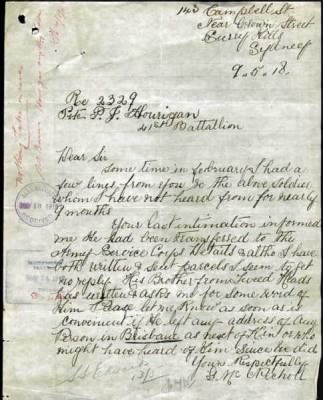 140 Campbell St
Near Crown Street
Surry Hills
Sydney
9.5.18.
Re 2329
Pte P. J. Hourigan
41st Battallion
Dear Sir
Some time in february I had a
few lines from you re the above soldier
whom I have not heard from for nearly
9 months
Your last intimation informed
me He had been transferred to the
Army Service Corps Details & altho I have
both written & sent parcels I seem to get
no reply. His Brother from Tweed Heads
has written & asks me for some word of
him Please let me know as soon as is
convenient if He left any address of any
Person in Brisbane as next of Kin or who
might have heard of him Since he did
Yours Respectfully